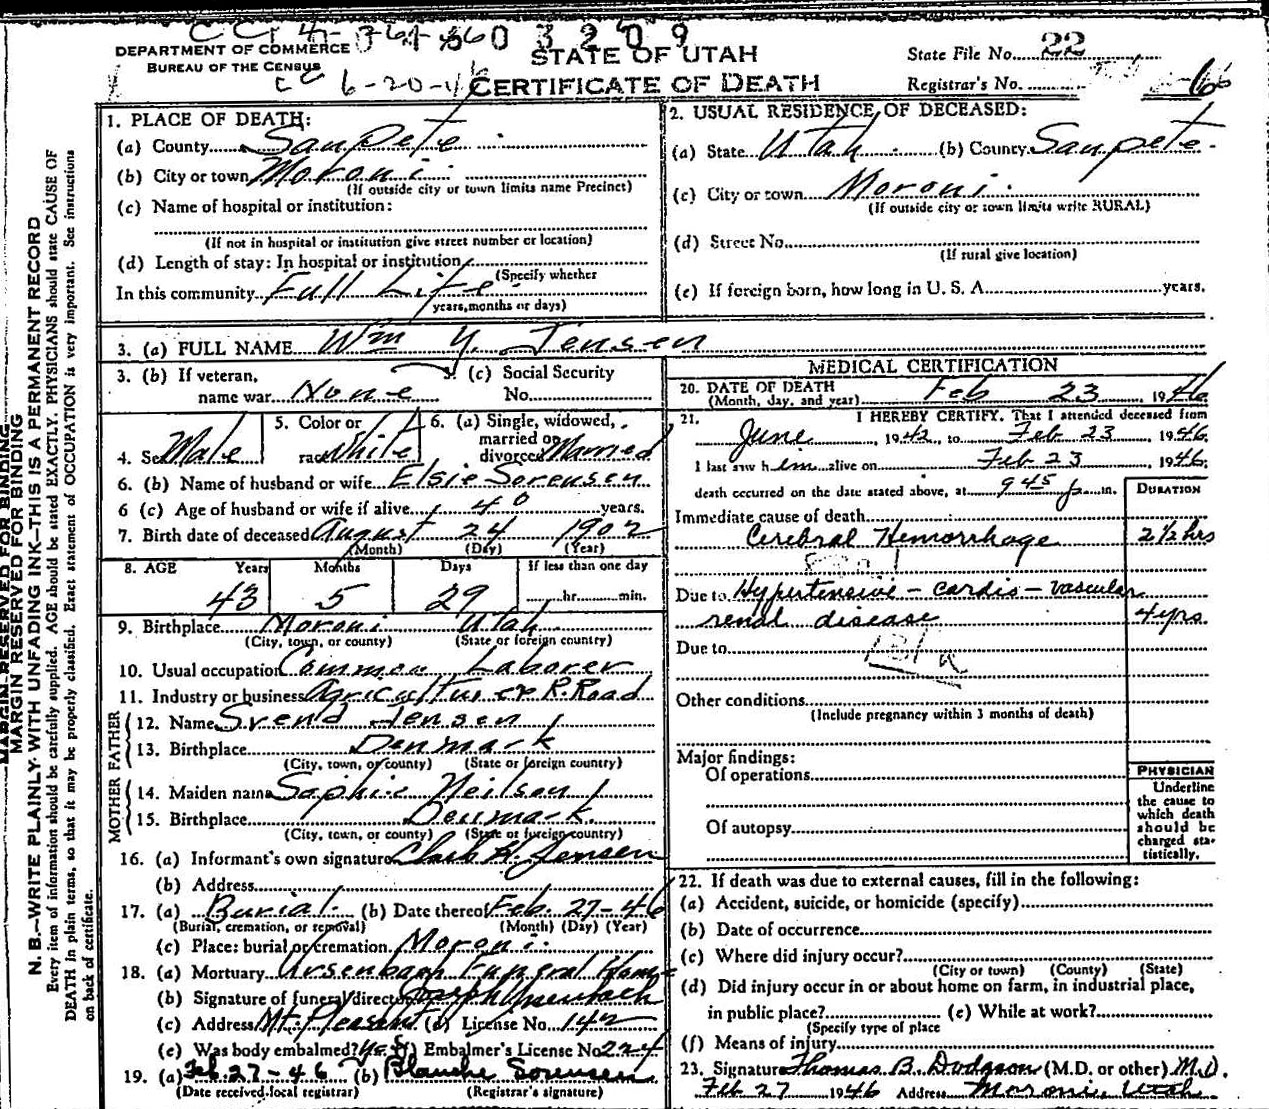 03209
DEPARTMENT OF COMMERCE
BUREAU OF THE CENSUS
6-20-46
STATE OF UTAH
CERTIFICATE OF DEATH
State File No. 22
Registrar's No.
MARGIN RESERVED FOR BINDING
MARGIN RESERVED FOR BINDING
N. B.—WRITE PLAINLY WITH UNFADING INK—THIS IS A PERMANENT RECORD
Every item of information should be carefully supplied. AGE should be stated EXACTLY. PHYSICIANS should state CAUSE OF
DEATH in plain terms, so that it may be properly classified. Exact statement of OCCUPATION is very important. See instructions
on back of certificate.
1. PLACE OF DEATH:
(a) County Sanpete
(b) City or town Moroni
(If outside city or town limits name Precinct)
(c) Name of hospital or institution:
(If not in hospital or institution give street number or location)
(d) Length of stay: In hospital or institution
(Specify whether
In this community Full Life
years, months or days)
2. USUAL RESIDENCE OF DECEASED:
(a) State Utah (b) County Sanpete
(c) City or town Moroni
(If outside city or town limits write RURAL)
(d) Street No.
(If rural give location)
(e) If foreign born, how long in U. S. A. years.
3. (a) FULL NAME Wm Y. Jensen
3. (b) If veteran,
name war None
3. (c) Social Security
No.
4. Sex Male
5. Color or
race White
6. (a) Single, widowed,
married or
divorced Married
6. (b) Name of husband or wife Elsie Sorensen
6 (c) Age of husband or wife if alive 40 years.
7. Birth date of deceased August 24 1902
(Month) (Day) (Year)
8. AGE Years Months Days If less than one day
43 5 29 hr. min.
9. Birthplace Moroni Utah
(City, town, or county) (State or foreign country)
10. Usual occupation Common Laborer
11. Industry or business Agricultur or R. Road
FATHER
12. Name Svend Jensen
13. Birthplace Denmark
(City, town, or county) (State or foreign country)
MOTHER
14. Maiden name Sophie Neilson
15. Birthplace Denmark
(City, town, or county) (State or foreign country)
16. (a) Informant's own signature Clark H. Jensen
(b) Address
17. (a) Burial (b) Date thereof Feb. 27-46
(Burial, cremation, or removal) (Month) (Day) (Year)
(c) Place: burial or cremation Moroni
18. (a) Mortuary Ursenbach Funeral Home
(b) Signature of funeral director Joseph Ursenbach
(c) Address Mt. Pleasant (d) License No. 142
(e) Was body embalmed? Yes (f) Embalmer's License No. 224
19. (a) Feb 27-46 (b) Blanche Sorensen
(Date received local registrar) (Registrar's signature)
MEDICAL CERTIFICATION
20. DATE OF DEATH
(Month, day, and year) Feb 23, 1946
21. I HEREBY CERTIFY, That I attended deceased from
June, 1942, to Feb 23 1946
I last saw him alive on Feb 23 1946
death occurred on the date stated above, at 9 45 p. m.
DURATION
Immediate cause of death
Cerebral Hemorrhage 2½ hrs
Due to Hypertensive - cardio - vascular
renal disease 4 yrs.
Due to
131a
Other conditions
(Include pregnancy within 3 months of death)
Major findings:
Of operations
Of autopsy
PHYSICIAN
Underline
the cause to
which death
should be
charged sta-
tistically.
22. If death was due to external causes, fill in the following:
(a) Accident, suicide, or homicide (specify)
(b) Date of occurrence
(c) Where did injury occur?
(City or town) (County) (State)
(d) Did injury occur in or about home on farm, in industrial place,
in public place? (e) While at work?
(Specify type of place
(f) Means of injury
23. Signature Thomas B. Dodgson (M.D. or other) M.D.
Feb 27 1946 Address Moroni, Utah